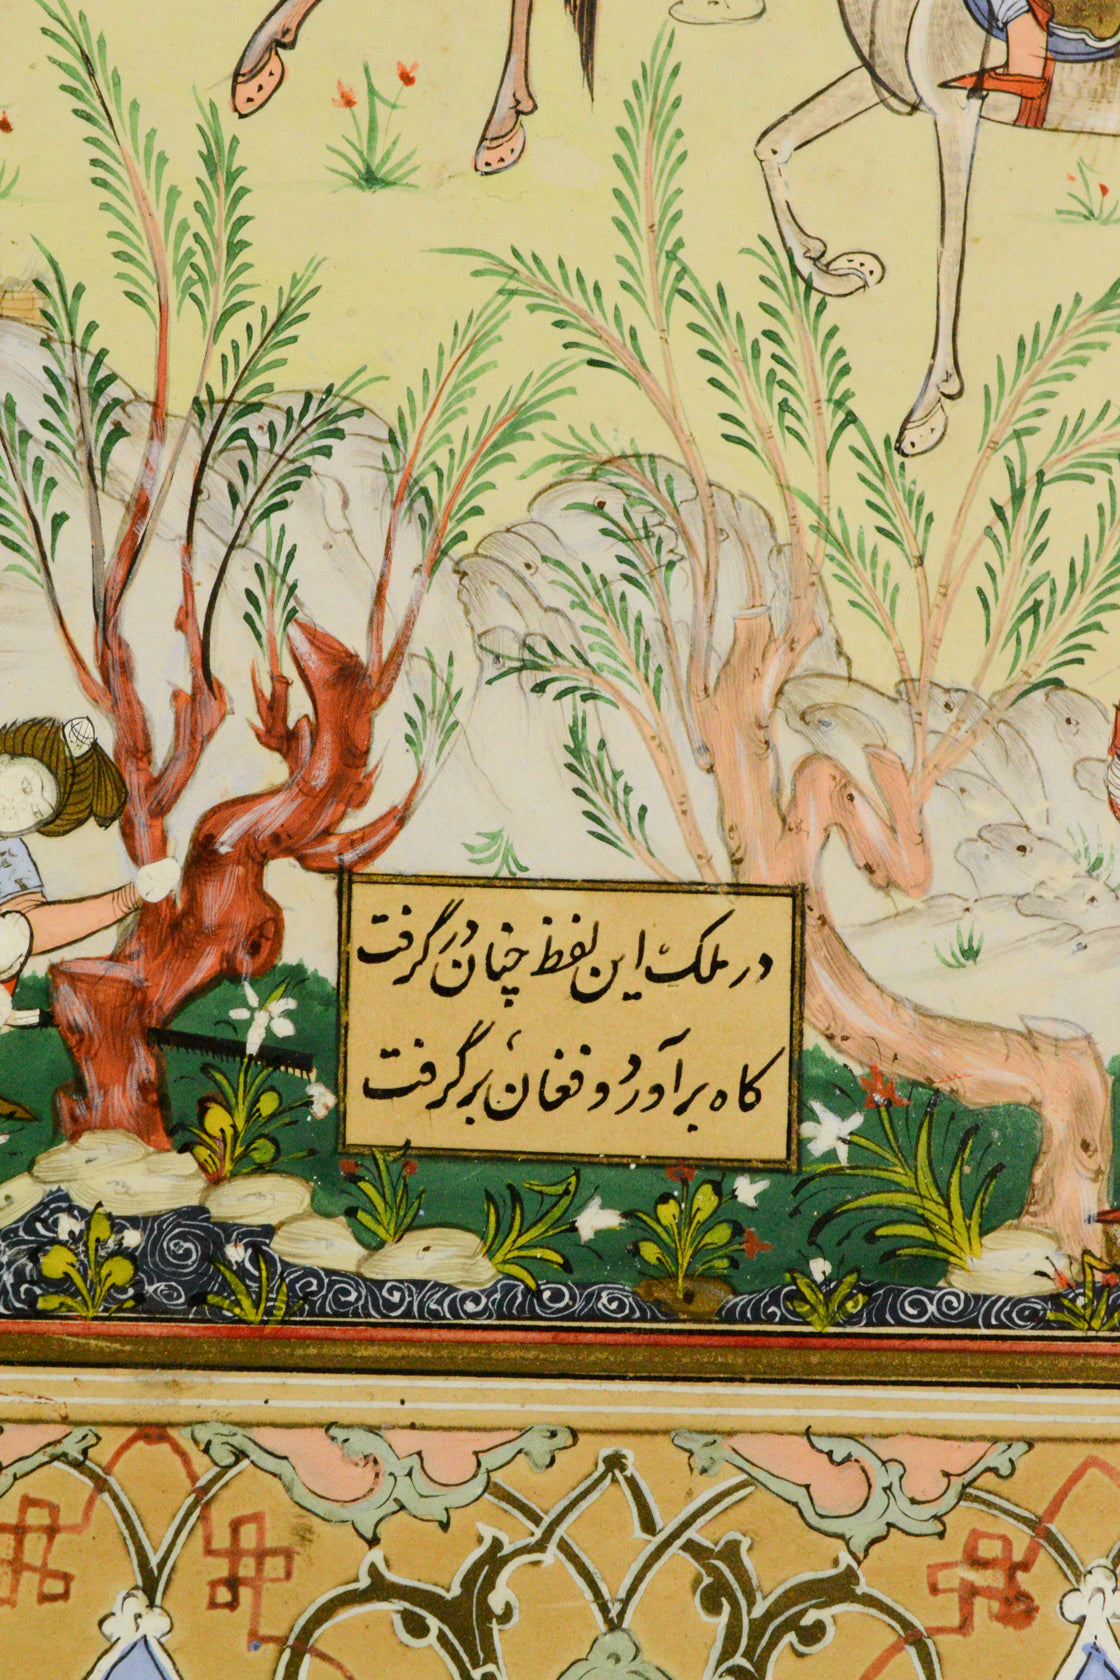 در ملک این لفظ چنان درگرفت
کاه برآورد و فغان برگرفت